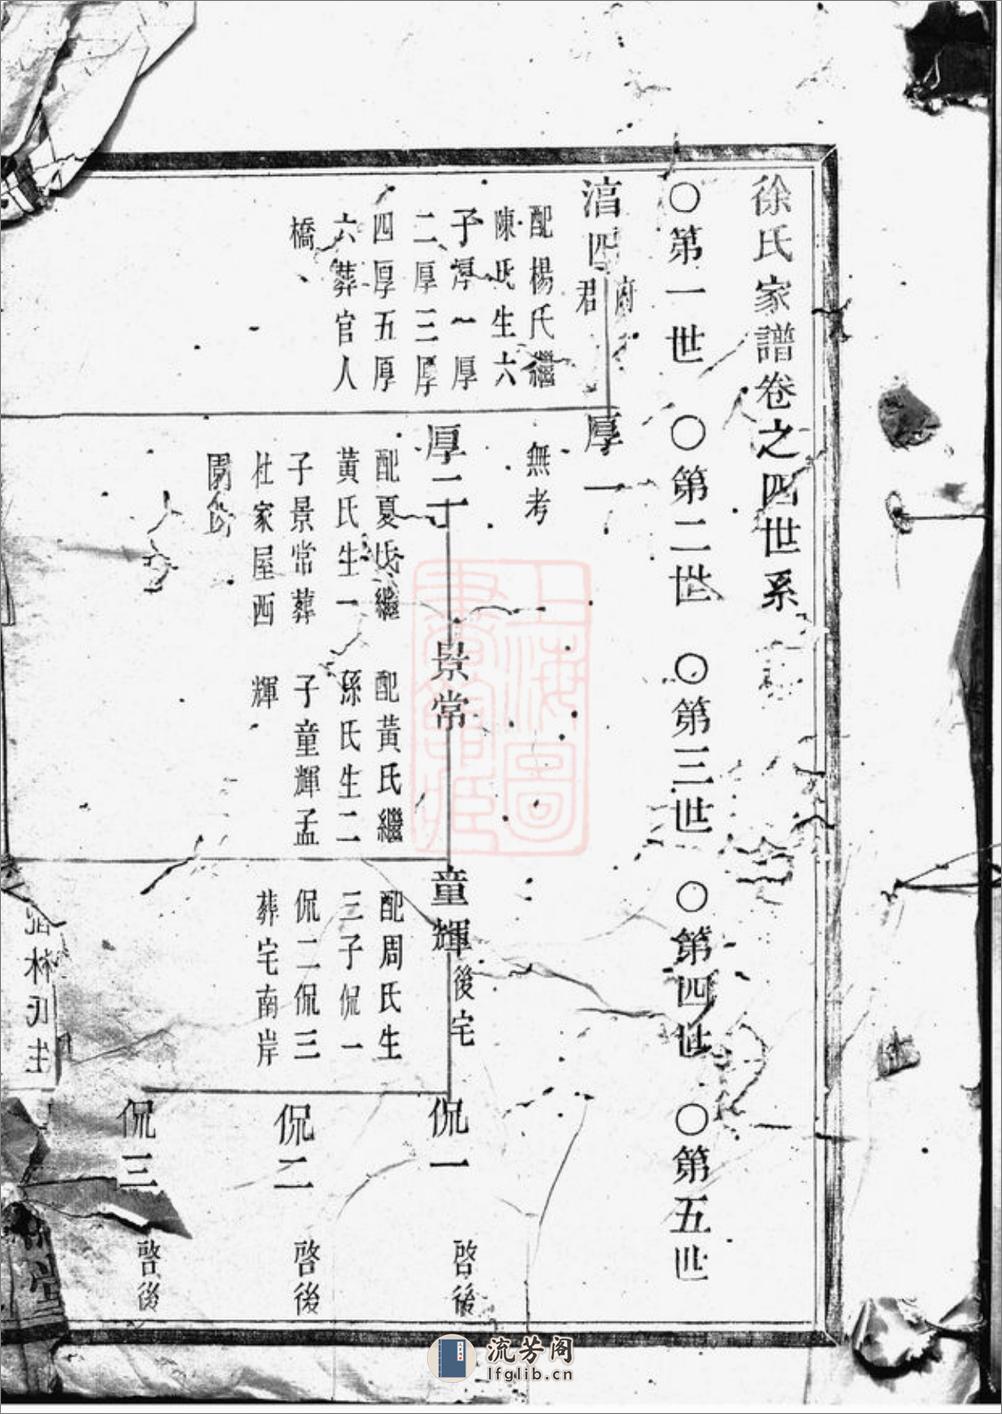 徐氏家譜卷之四世系
○第一世　○第二世　○第三世　○第四世　○第五世
四府君
配楊氏繼
陳氏生六
子厚一厚
二厚三厚
四厚五厚
六葬官人
橋
厚一
無考
厚二
配夏氏繼
黃氏生一
子景常葬
杜家屋西
園
景常
配黃氏繼
孫氏生二
子童輝孟
輝
童輝後宅
配周氏生
三子侃一
侃二侃三
葬宅南岸
侃一 啓後
侃二 啓後
侃三 啓後
上海圖
書館藏
堂
流芳阁
lfglib.cn